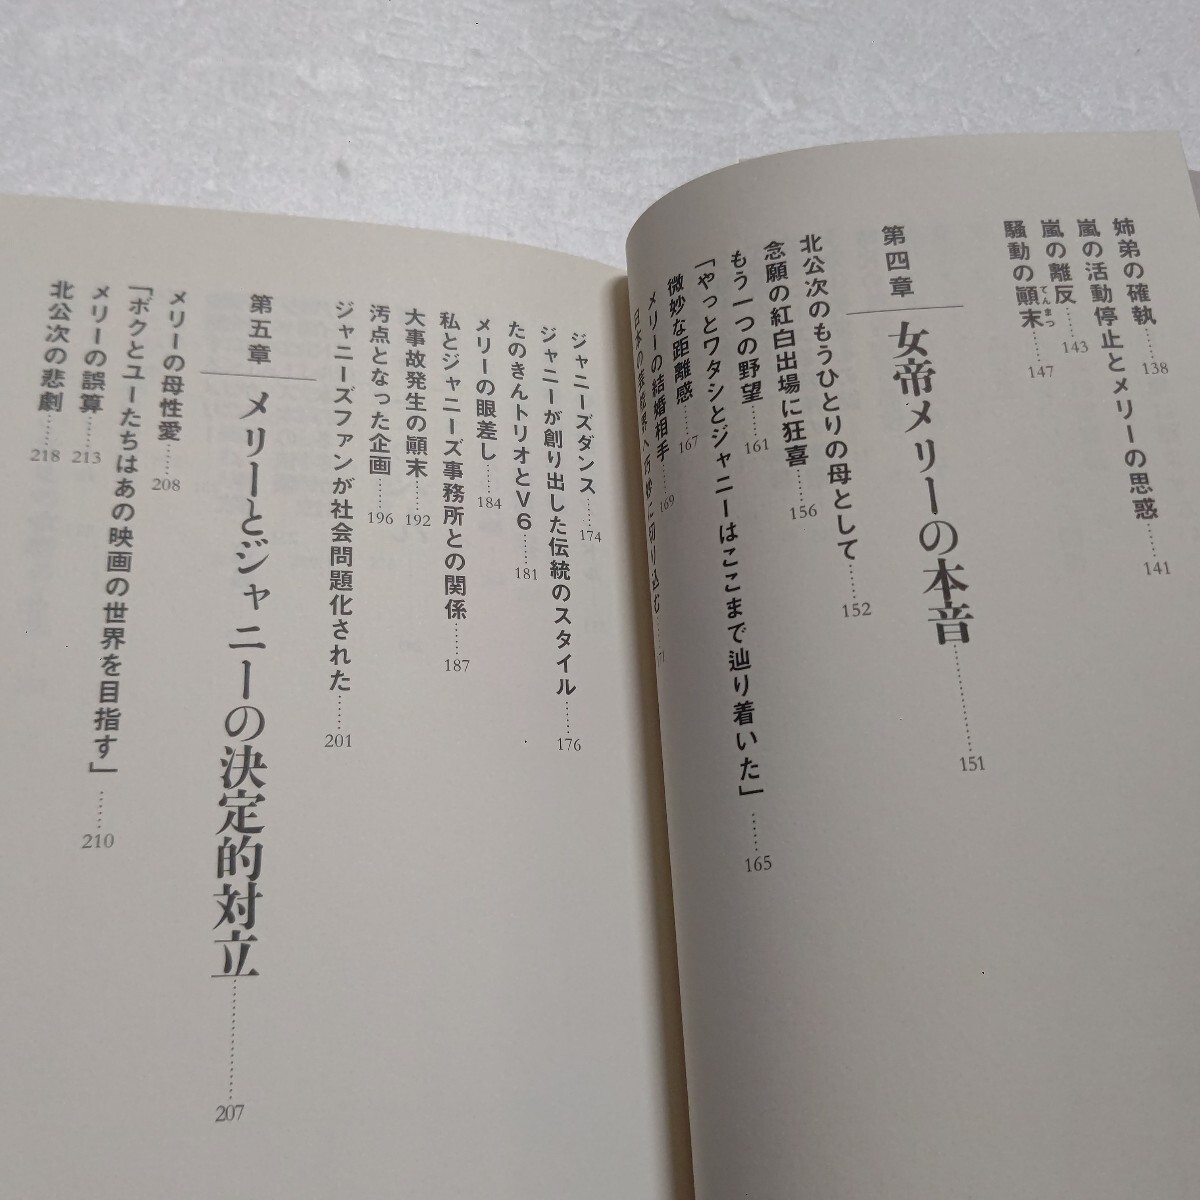 姉弟の確執……138
嵐の活動停止とメリーの思惑……141
嵐の離反……143
騒動の顚末……147
てんまつ
第四章 女帝メリーの本音……151
北公次のもうひとりの母として……152
念願の紅白出場に狂喜……156
もう一つの野望……161
「やっとワタシとジャニーはここまで辿り着いた」……165
微妙な距離感……167
メリーの結婚相手……169
日本の芸能界へ巧妙に切り込む……171
ジャニーズダンス……174
ジャニーが創り出した伝統のスタイル……176
たのきんトリオとV6……181
メリーの眼差し……184
私とジャニーズ事務所との関係……187
大事故発生の顚末……192
汚点となった企画……196
ジャニーズファンが社会問題化された……201
第五章 メリーとジャニーの決定的対立……207
メリーの母性愛……208
「ボクとユーたちはあの映画の世界を目指す」……210
メリーの誤算……213
北公次の悲劇……218